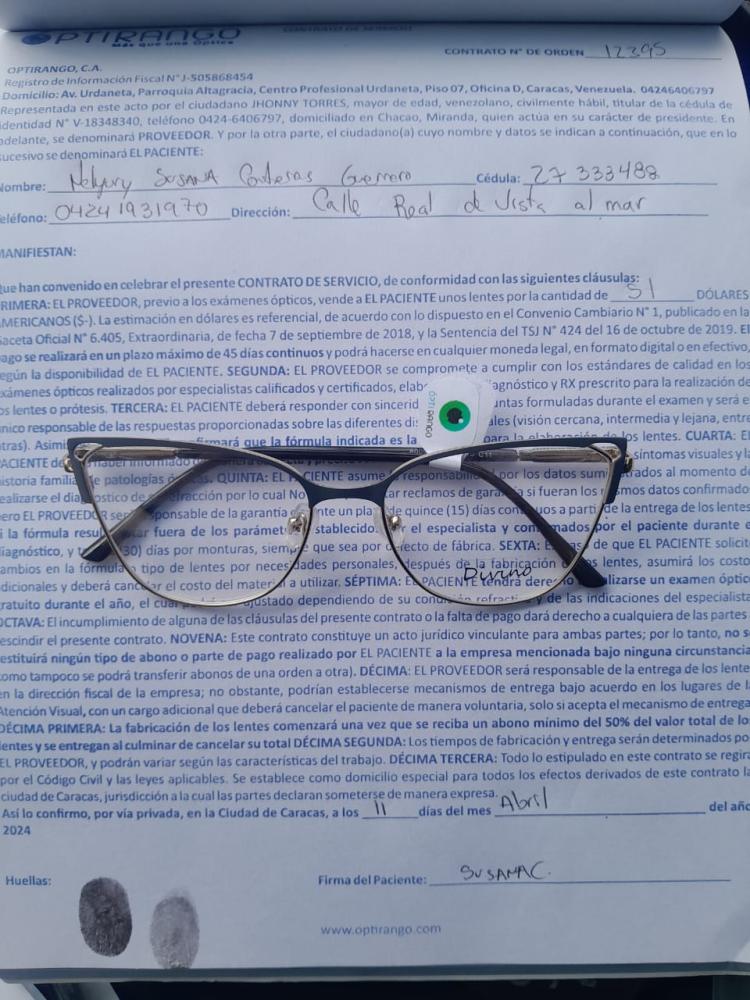 OPTIRANGO
Más que una Óptica
CONTRATO DE SERVICIO
CONTRATO N° DE ORDEN 12395
OPTIRANGO, C.A.
Registro de Información Fiscal N° J-505868454
Domicilio: Av. Urdaneta, Parroquia Altagracia, Centro Profesional Urdaneta, Piso 07, Oficina D, Caracas, Venezuela. 04246406797
Representada en este acto por el ciudadano JHONNY TORRES, mayor de edad, venezolano, civilmente hábil, titular de la cédula de
identidad N° V-18348340, teléfono 0424-6406797, domiciliado en Chacao, Miranda, quien actúa en su carácter de presidente. En
adelante, se denominará PROVEEDOR. Y por la otra parte, el ciudadano(a) cuyo nombre y datos se indican a continuación, que en lo
sucesivo se denominará EL PACIENTE:
Nombre: Nelyury SUSANA Contreras Guerrero Cédula: 27 333488
eléfono: 04241931970 Dirección: Calle Real de Vista al mar
MANIFIESTAN:
Que han convenido en celebrar el presente CONTRATO DE SERVICIO, de conformidad con las siguientes cláusulas:
PRIMERA: EL PROVEEDOR, previo a los exámenes ópticos, vende a EL PACIENTE unos lentes por la cantidad de 51 DÓLARES
AMERICANOS ($-). La estimación en dólares es referencial, de acuerdo con lo dispuesto en el Convenio Cambiario N° 1, publicado en la
Gaceta Oficial N° 6.405, Extraordinaria, de fecha 7 de septiembre de 2018, y la Sentencia del TSJ N° 424 del 16 de octubre de 2019. El
pago se realizará en un plazo máximo de 45 días continuos y podrá hacerse en cualquier moneda legal, en formato digital o en efectivo,
según la disponibilidad de EL PACIENTE. SEGUNDA: EL PROVEEDOR se compromete a cumplir con los estándares de calidad en los
exámenes ópticos realizados por especialistas calificados y certificados, elab agnóstico y RX prescrito para la realización de
os lentes o prótesis. TERCERA: EL PACIENTE deberá responder con sincerid untas formuladas durante el examen y será e
único responsable de las respuestas proporcionadas sobre las diferentes di ales (visión cercana, intermedia y lejana, entre
otras). Asimi firmará que la fórmula indicada es la para la elaboración de los lentes. CUARTA: E
PACIENTE de haber informado síntomas visuales y la
historia familia e patologías QUINTA: EL PACIENTE asume responsabilid por los datos sum trados al momento de
realizarse el diagnóstico de refracción por lo cual No car reclamos de garantía si fueran los mismos datos confirmado
pero EL PROVEEDOR será sponsable de la garantía nte un plazo de quince (15) días continuos a partir de la entrega de los lentes
i la fórmula result ar fuera de los paráme establecido r el especialista y con mados por el paciente durante e
diagnóstico, y t 30) días por monturas, siempre que sea por defecto de fábrica. SEXTA: E as de que EL PACIENTE solicit
ambios en la fórmula tipo de lentes por necesidades personales, después de la fabricación lentes, asumirá los costo
dicionales y deberá cancelar el costo del material a utilizar. SÉPTIMA: EL PACIENTE tendrá derecho alizarse un examen óptico
Divino
ratuito durante el año, el cual ajustado dependiendo de su condición refracti y de las indicaciones del especialista
OCTAVA: El incumplimiento de alguna de las cláusulas del presente contrato o la falta de pago dará derecho a cualquiera de las partes
escindir el presente contrato. NOVENA: Este contrato constituye un acto jurídico vinculante para ambas partes; por lo tanto, no s
estituirá ningún tipo de abono o parte de pago realizado por EL PACIENTE a la empresa mencionada bajo ninguna circunstancia
como tampoco se podrá transferir abonos de una orden a otra). DÉCIMA: EL PROVEEDOR será responsable de la entrega de los lente
en la dirección fiscal de la empresa; no obstante, podrían establecerse mecanismos de entrega bajo acuerdo en los lugares de la
Atención Visual, con un cargo adicional que deberá cancelar el paciente de manera voluntaria, solo si acepta el mecanismo de entrega
DÉCIMA PRIMERA: La fabricación de los lentes comenzará una vez que se reciba un abono mínimo del 50% del valor total de lo
lentes y se entregan al culminar de cancelar su total DÉCIMA SEGUNDA: Los tiempos de fabricación y entrega serán determinados po
EL PROVEEDOR, y podrán variar según las características del trabajo. DÉCIMA TERCERA: Todo lo estipulado en este contrato se regirá
por el Código Civil y las leyes aplicables. Se establece como domicilio especial para todos los efectos derivados de este contrato la
ciudad de Caracas, jurisdicción a la cual las partes declaran someterse de manera expresa.
Así lo confirmo, por vía privada, en la Ciudad de Caracas, a los 11 días del mes Abril del año
2024
Huellas:
Firma del Paciente: SUSANA C.
www.optirango.com